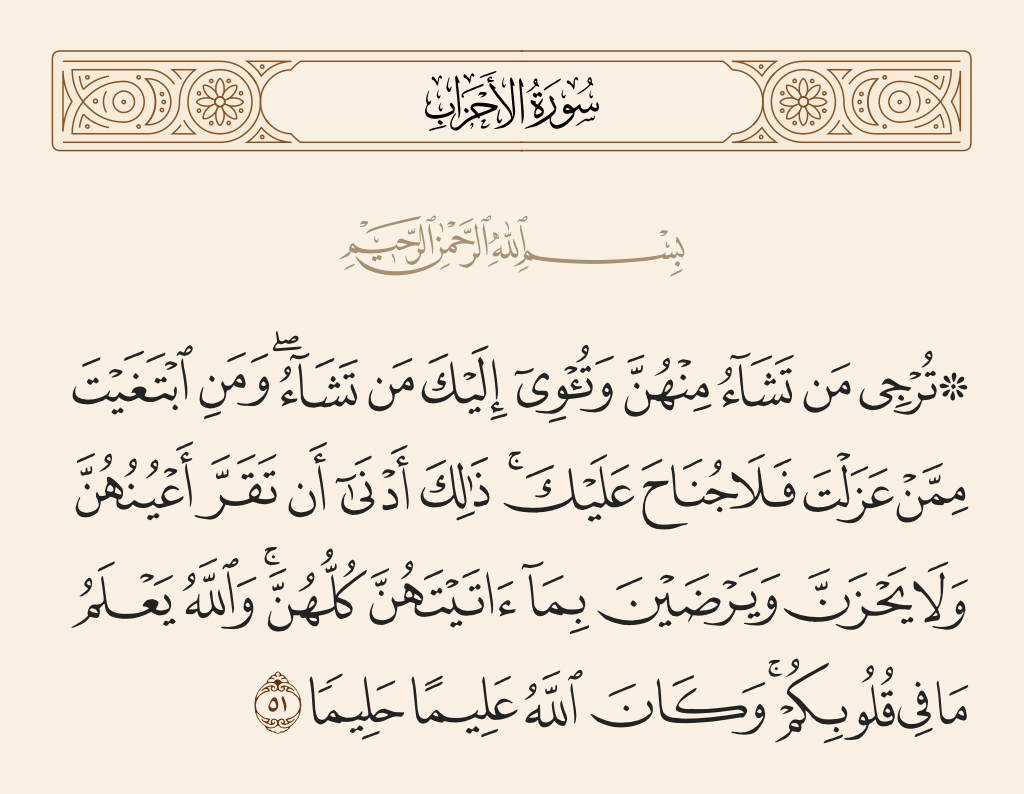 سُورَةُ الأَحْزَابِ
بِسْمِ ٱللَّهِ ٱلرَّحْمَٰنِ ٱلرَّحِيمِ
۞ تُرْجِى مَن تَشَآءُ مِنْهُنَّ وَتُـْٔوِىٓ إِلَيْكَ مَن تَشَآءُ ۖ وَمَنِ ٱبْتَغَيْتَ
مِمَّنْ عَزَلْتَ فَلَا جُنَاحَ عَلَيْكَ ۚ ذَٰلِكَ أَدْنَىٰٓ أَن تَقَرَّ أَعْيُنُهُنَّ
وَلَا يَحْزَنَّ وَيَرْضَيْنَ بِمَآ ءَاتَيْتَهُنَّ كُلُّهُنَّ ۚ وَٱللَّهُ يَعْلَمُ
مَا فِى قُلُوبِكُمْ ۚ وَكَانَ ٱللَّهُ عَلِيمًا حَلِيمًا ٥١